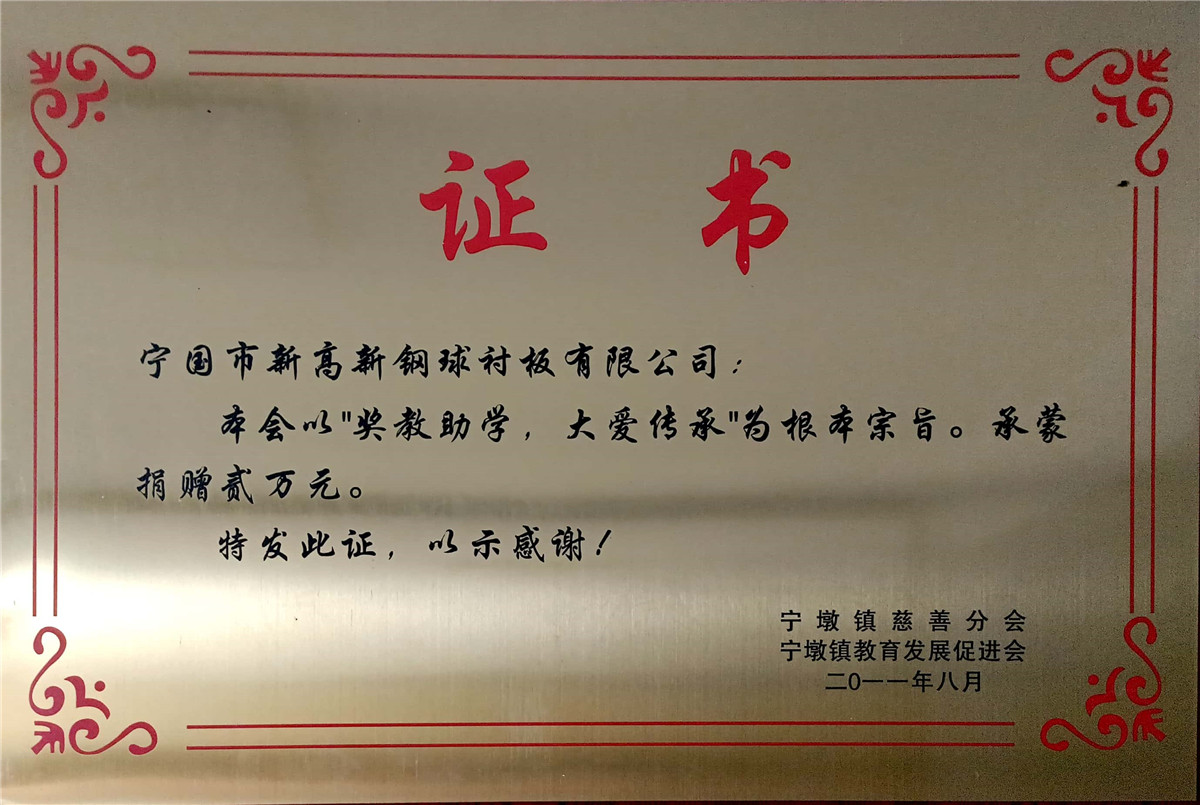 证书
宁国市新高新钢球衬板有限公司：
本会以"奖教助学，大爱传承"为根本宗旨。承蒙
捐赠贰万元。
特发此证，以示感谢！
宁墩镇慈善分会
宁墩镇教育发展促进会
二0一一年八月